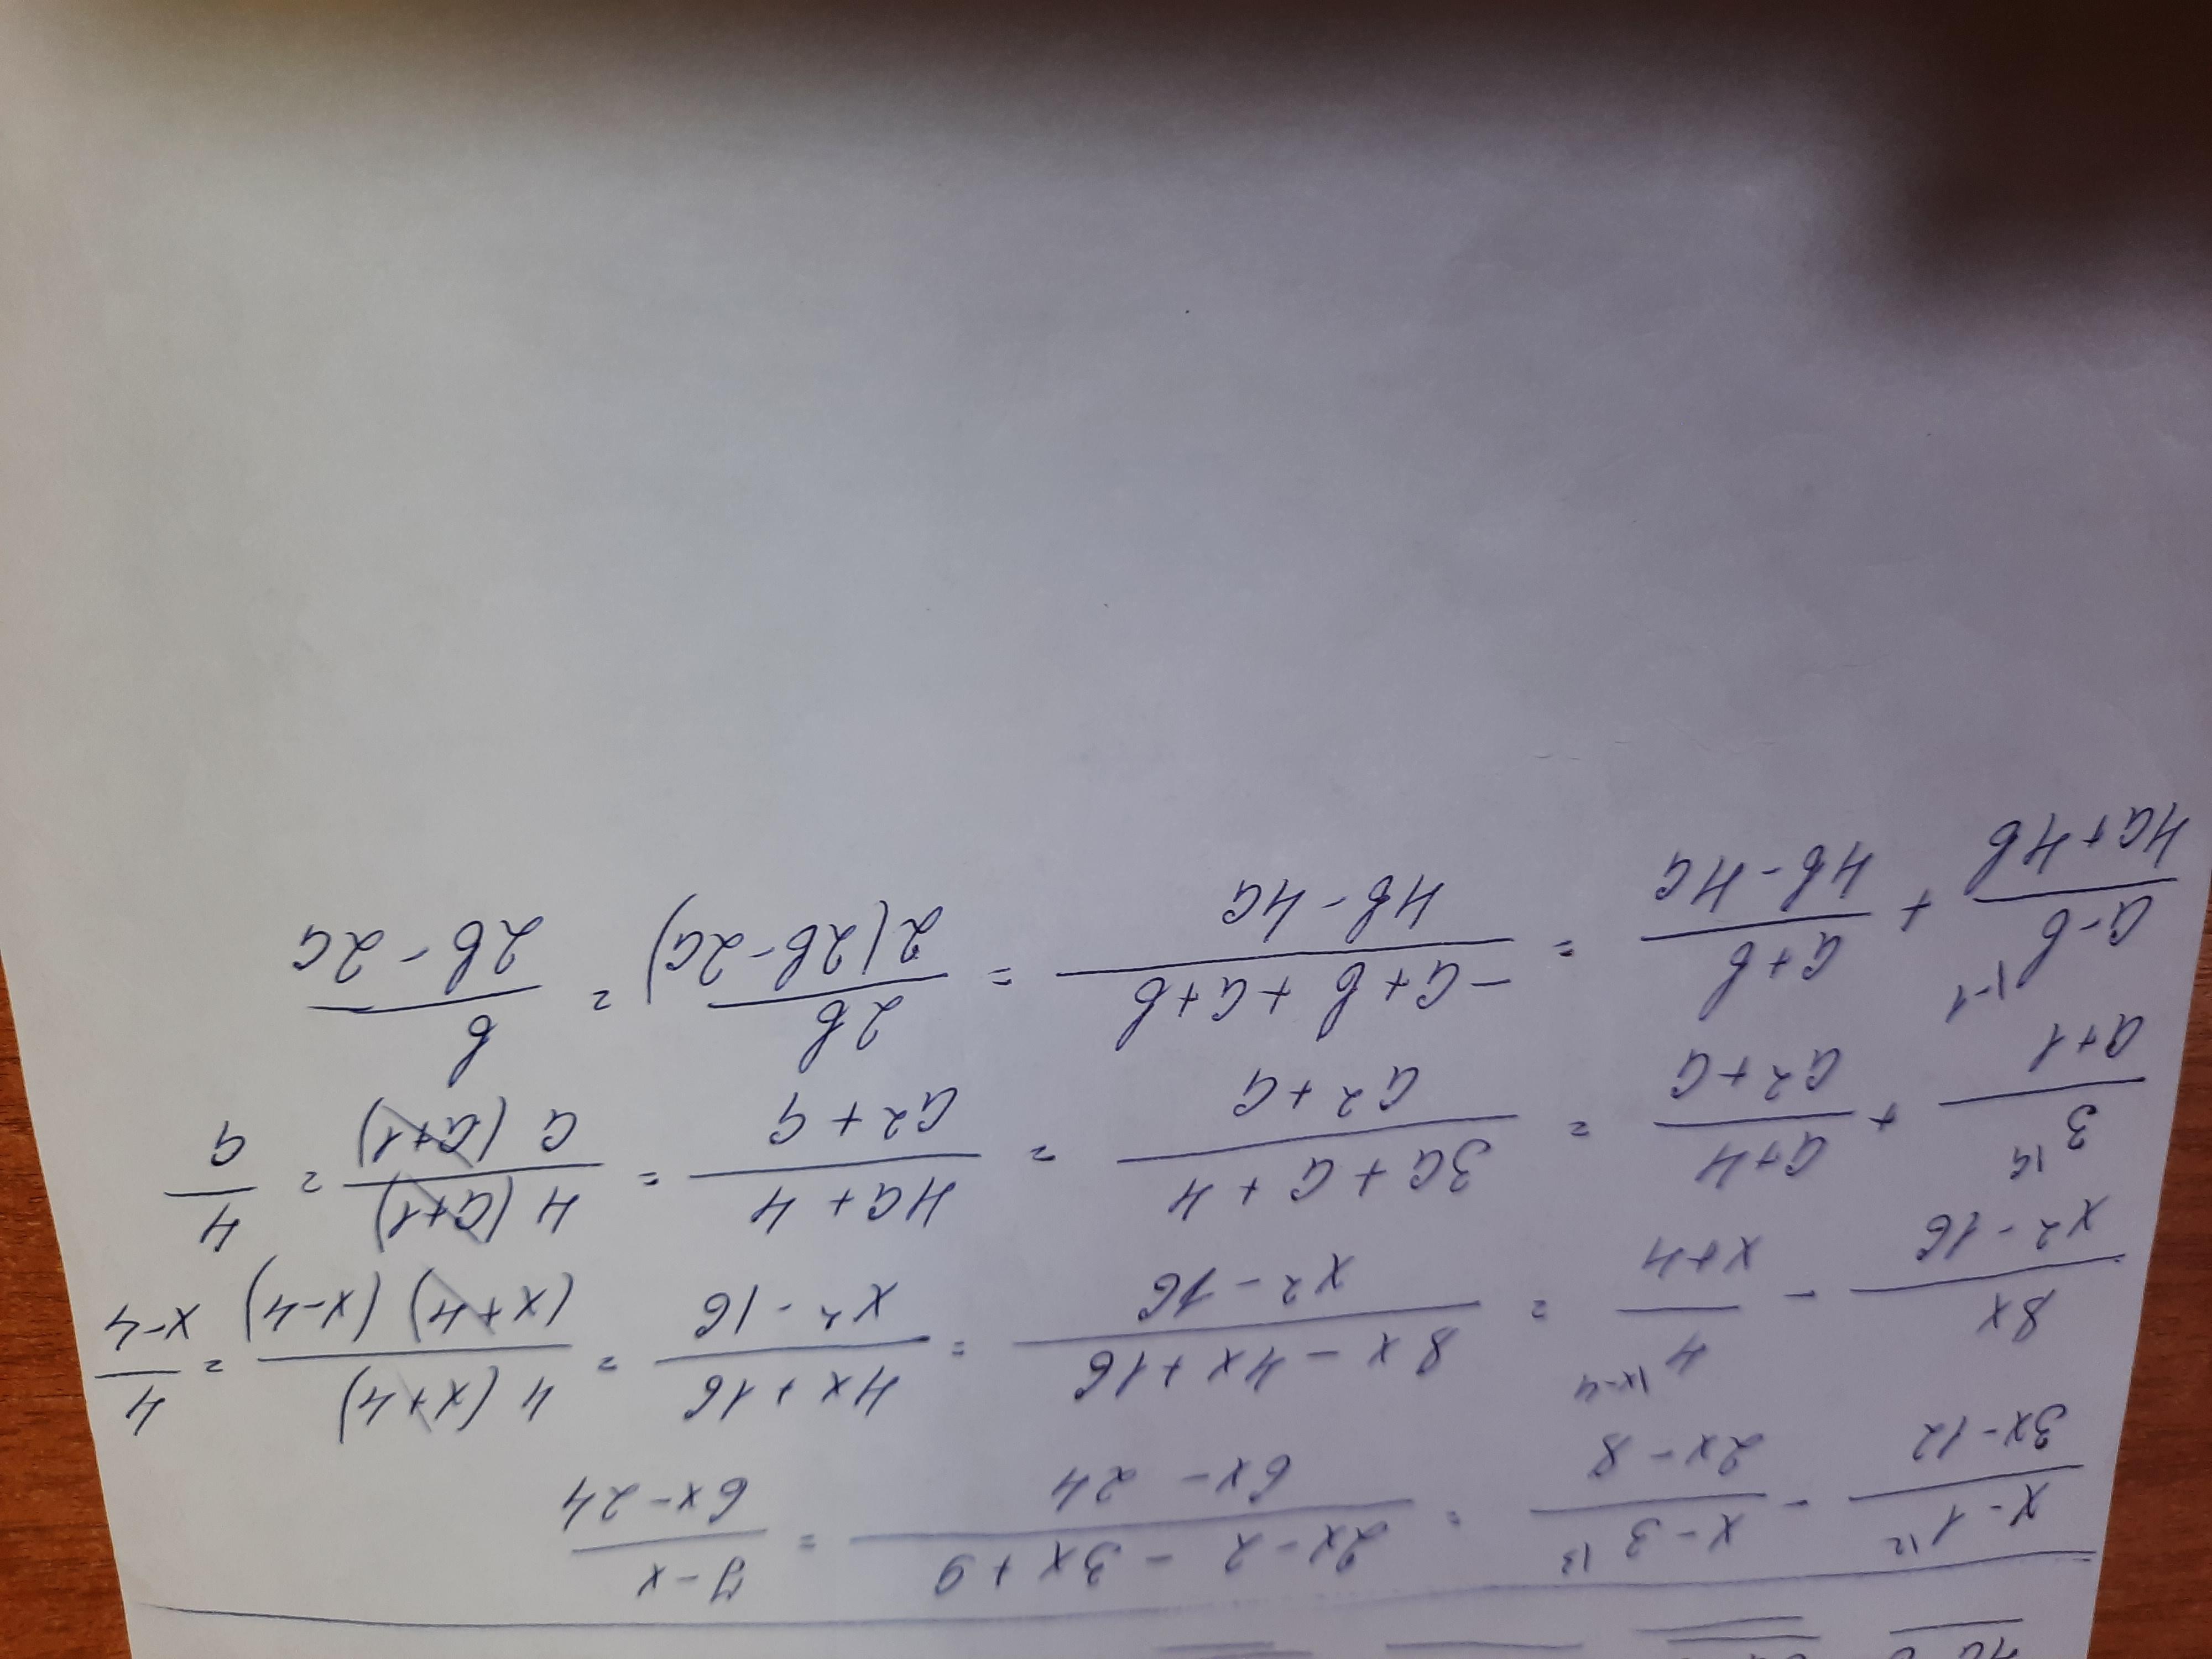 (x-1 |2)/(3x-12) - (x-3 |3)/(2x-8) = (2x-2-3x+9)/(6x-24) = (7-x)/(6x-24)
8x/(x²-16) - (4 |x-4)/(x+4) = (8x-4x+16)/(x²-16) = (4x+16)/(x²-16) = 4(x+4)/(x+4)(x-4) = 4/(x-4)
(3 |a)/(a+1) + (a+4)/(a²+a) = (3a+a+4)/(a²+a) = (4a+4)/(a²+a) = 4(a+1)/a(a+1) = 4/a
(a-b |-1)/(4a+4b) + (a+b)/(4b-4a) = (-a+b+a+b)/(4b-4a) = 2b/2(2b-2a) = b/(2b-2a)